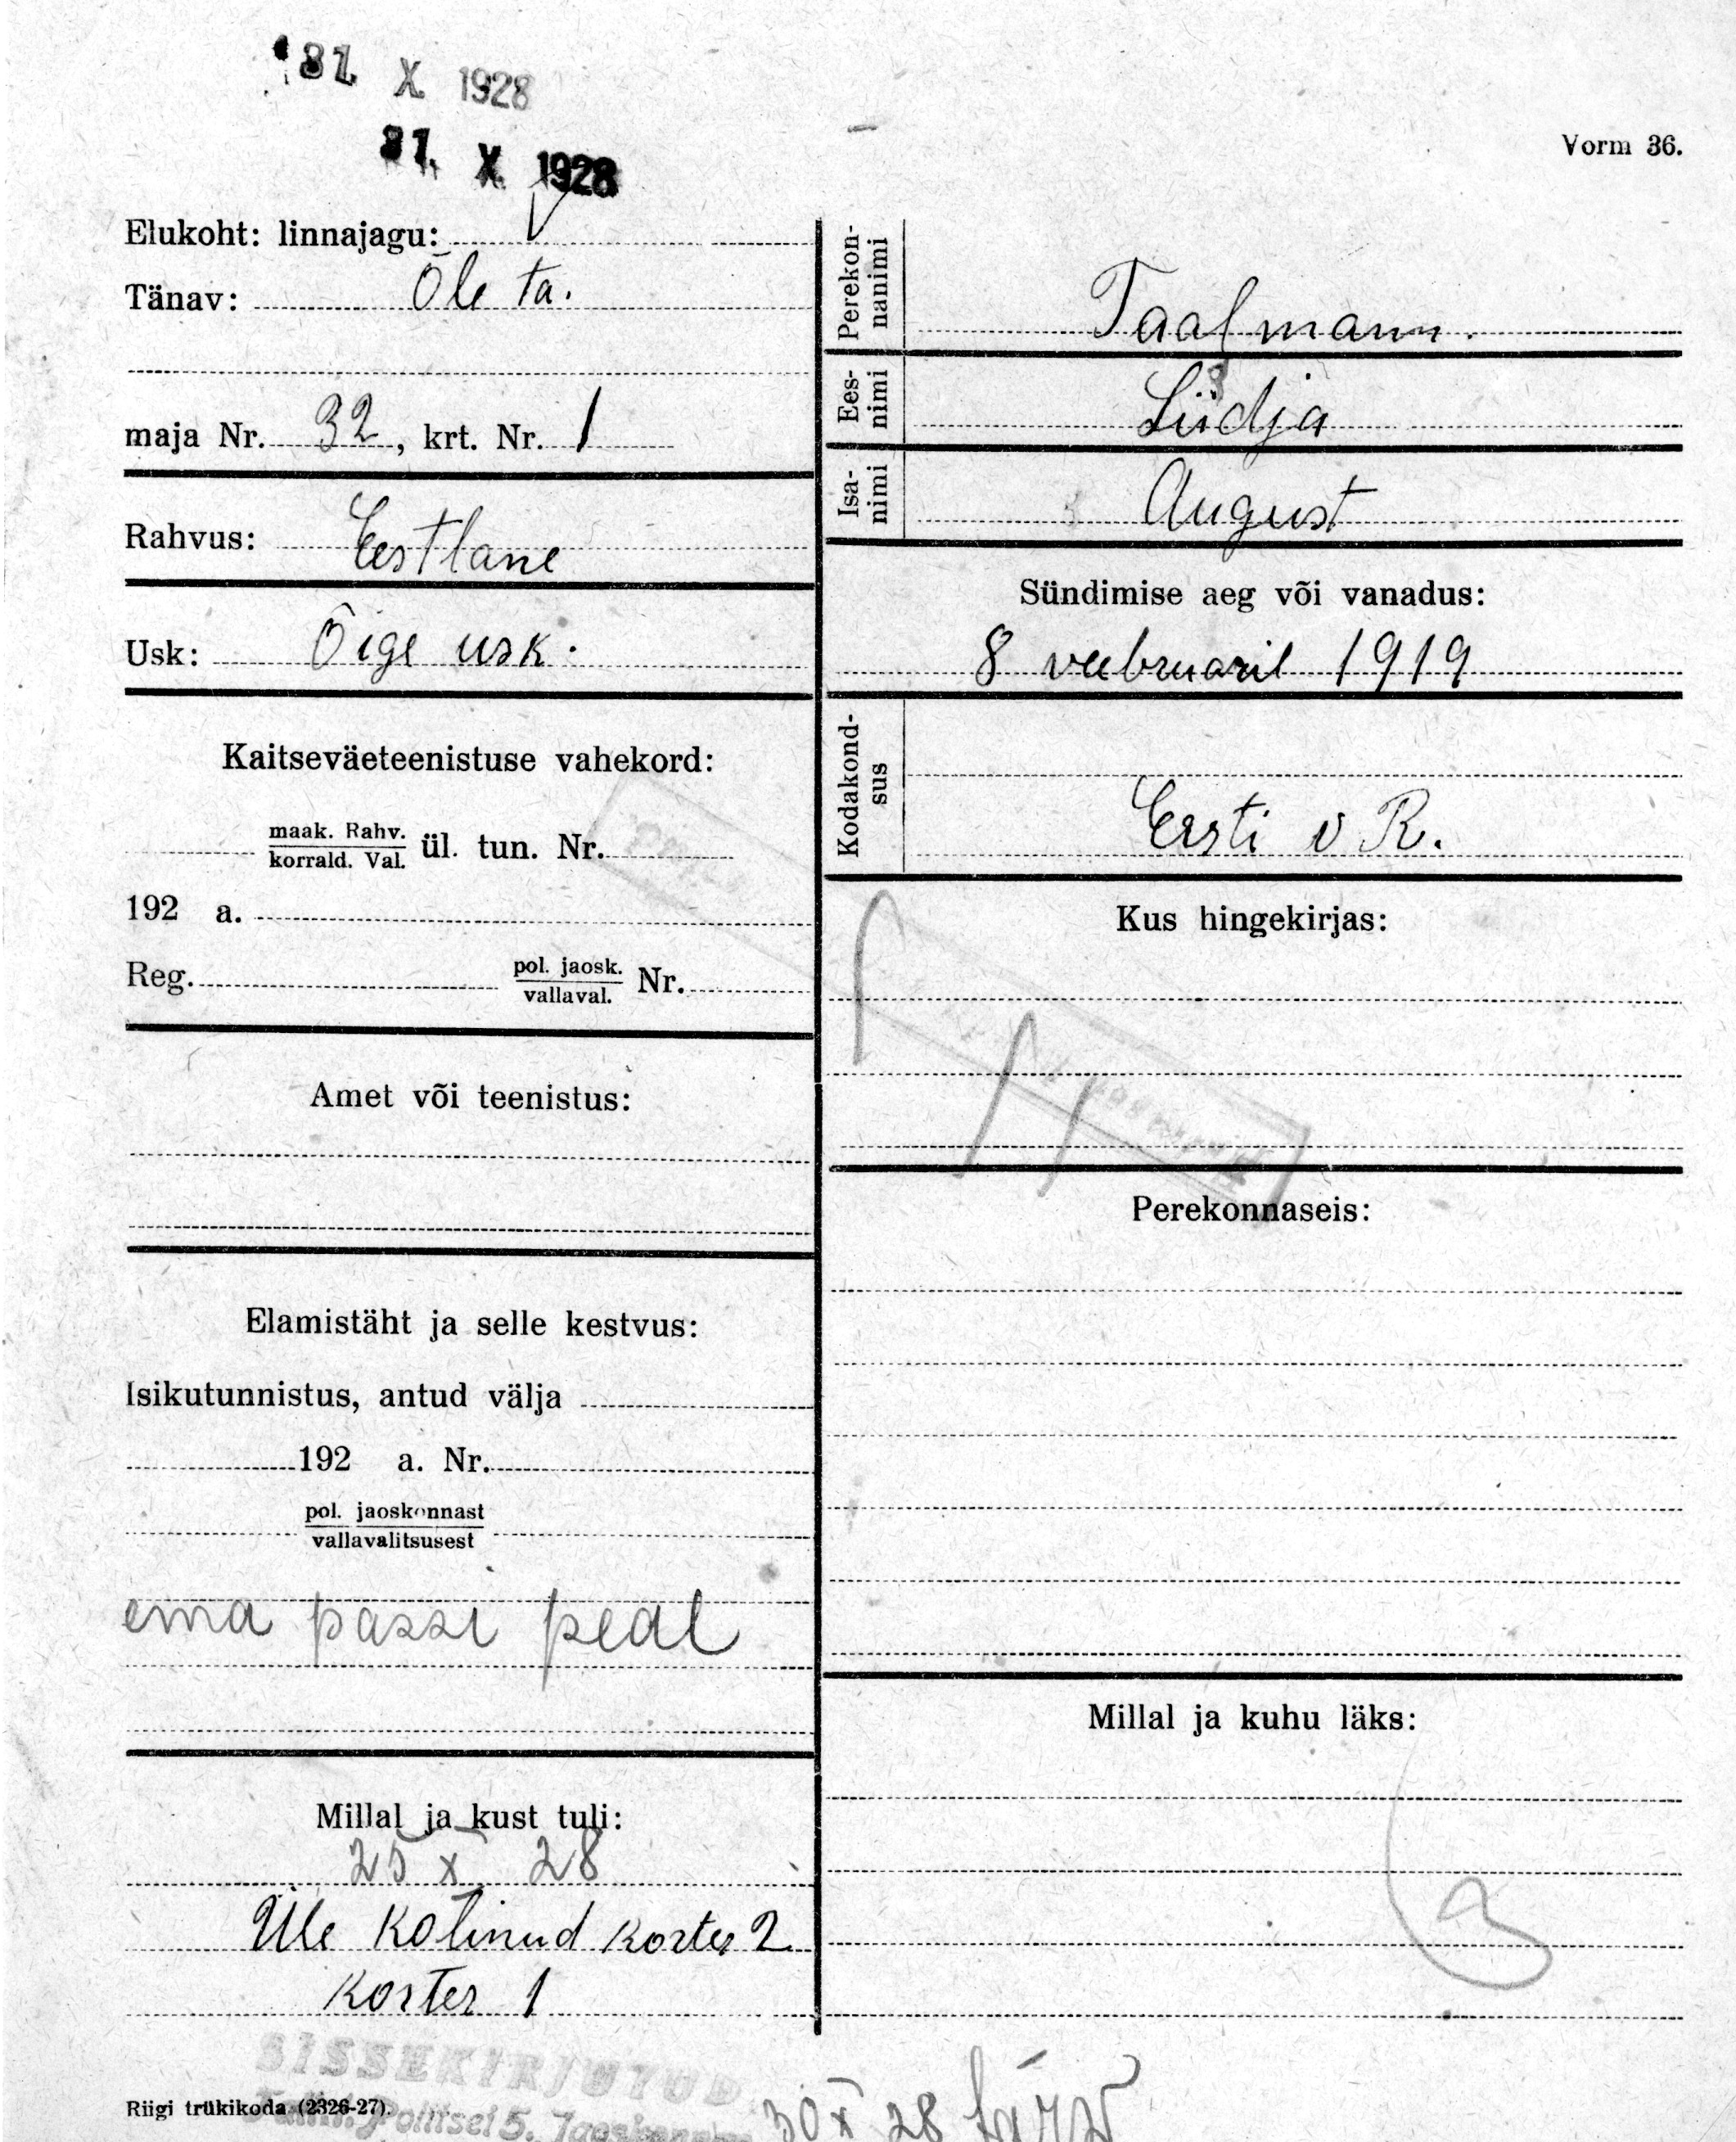 31. X 1928
31. X 1928
Vorm 36.
Elukoht: linnajagu:
Tänav: Õle ta.
maja Nr. 32, krt. Nr. 1
Rahvus: Eestlane
Usk: Õige usk.
Kaitseväeteenistuse vahekord:
maak. Rahv.
korrald. Val. ül. tun. Nr.
192 a.
Reg. pol. jaosk.
vallaval. Nr.
Amet või teenistus:
Elamistäht ja selle kestvus:
Isikutunnistus, antud välja
192 a. Nr.
pol. jaoskonnast
vallavalitsusest
ema passi peal
Millal ja kust tuli:
25 X 28
Üle kolinud korter 2
korter 1
SISSEKIRJUTUD
Tallin. Politsei 5. Jaoskonnas
Riigi trükikoda (2326-27).
Perekon-
nanimi
Taalmann.
Ees-
nimi
Liidja
Isa-
nimi
August
Sündimise aeg või vanadus:
8 veebruaril 1919
Kodakond-
sus
Eesti v R.
Kus hingekirjas:
Perekonnaseis:
Millal ja kuhu läks:
30 X 28